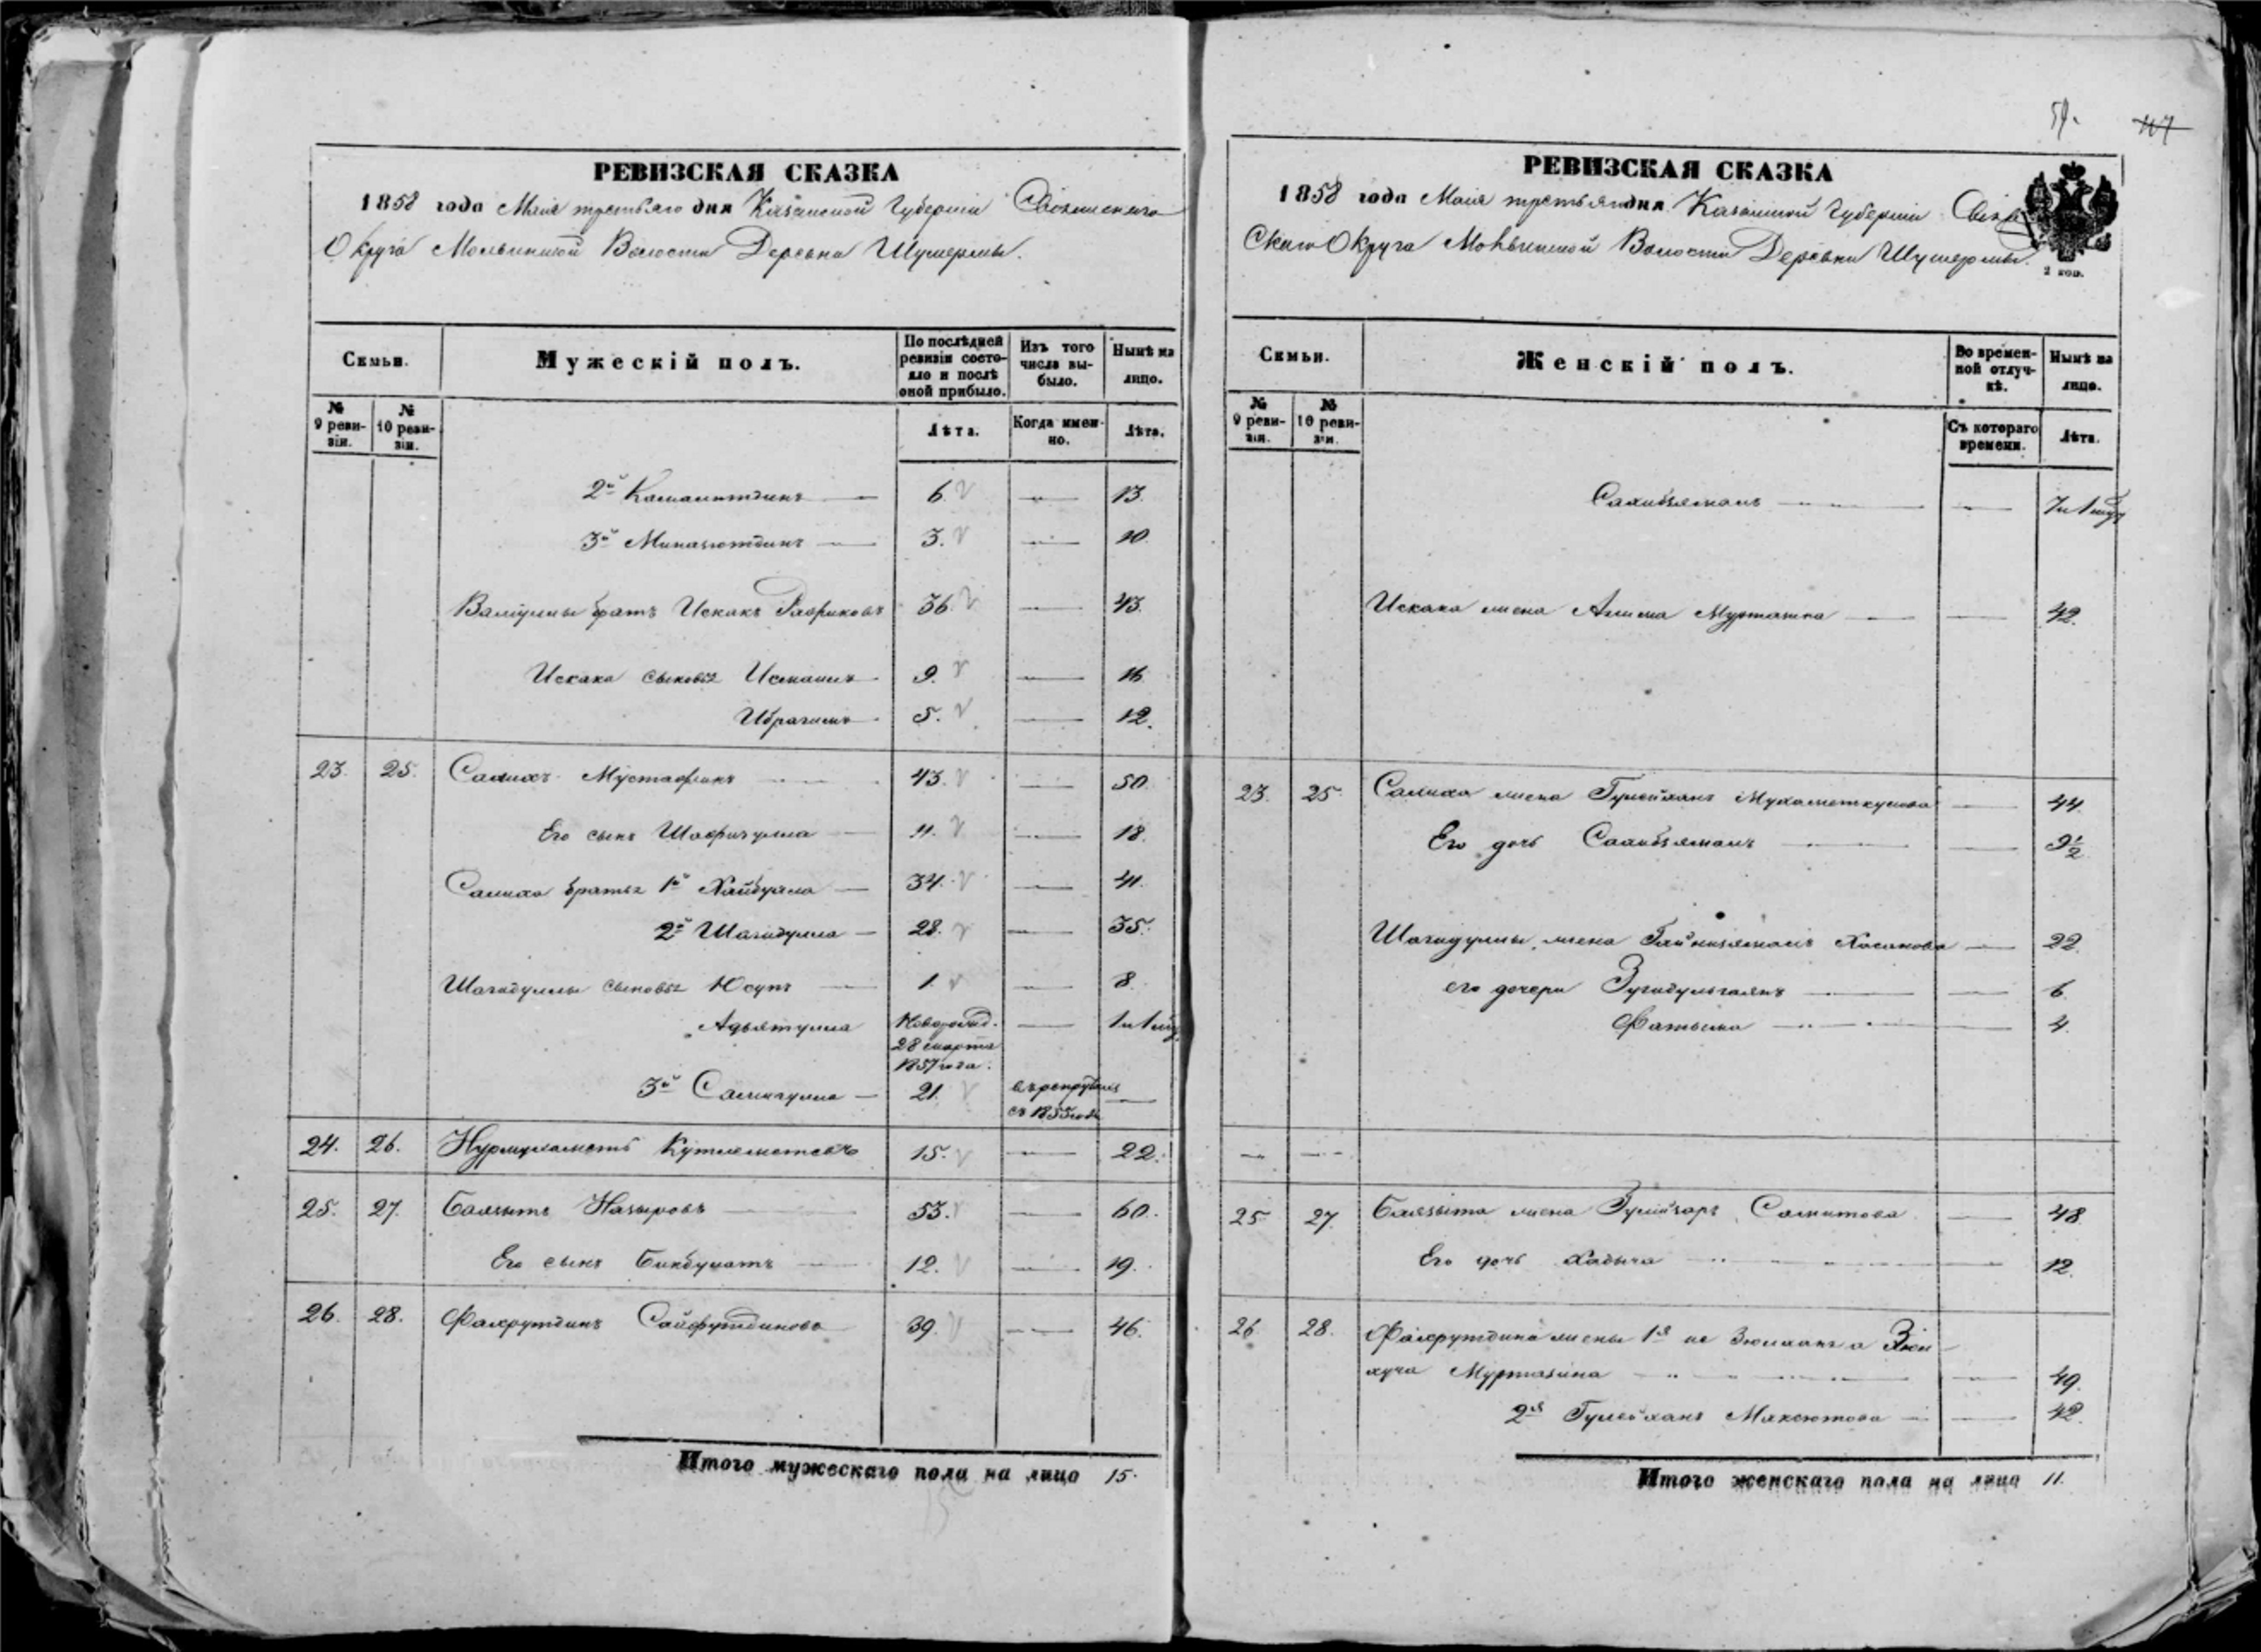 59.
117
РЕВИЗСКАЯ СКАЗКА
1858 года Мая третьяго дня Казанской Губернiи Свiяжскаго
Округа Мольвинской Волости Деревни Шушермы.
Семьи.
Мужескiй полъ.
По послѣдней ревизiи состояло и послѣ оной прибыло.
Изъ того числа выбыло.
Нынѣ на лицо.
№ 9 ревизiи.
№ 10 ревизiи.
Лѣта.
Когда именно.
Лѣта.
2й Камалитдинъ 6. 13.
3й Миназютдинъ 3. 10.
Валiуллы братъ Искакъ Рафиковъ 36. 43.
Искака сыновья Исмаилъ 9. 16.
Ибрагимъ 5. 12.
23. 25. Салихъ Мустафинъ 43. 50.
Его сынъ Шафигулла 11. 18.
Салиха братья 1й Хайбулла 34. 41.
2й Шагидулла 28. 35.
Шагидуллы сыновья Юсупъ 1. 8.
Адъятулла Новорожд. 1 и 1 мѣ
28 марта
1857 года.
3й Самигулла 21. въ рекрутахъ
съ 1855 года
24. 26. Нурмухаметъ Кутлеметевъ 15. 22.
25. 27. Баязытъ Назыровъ 53. 60.
Его сынъ Бикбулатъ 12. 19.
26. 28. Фахрутдинъ Сайфутдиновъ 39. 46.
Итого мужескаго пола на лицо 15.
РЕВИЗСКАЯ СКАЗКА
1858 года Мая третьяго дня Казанской Губернiи Свiяж
скаго Округа Мольвинской Волости Деревни Шушермы.
2 коп.
Семьи.
Женскiй полъ.
Во временной отлучкѣ.
Нынѣ на лицо.
№ 9 ревизiи.
№ 10 ревизiи.
Съ котораго времени.
Лѣта.
Сахибзямалъ 7 и 1 мѣ
Искака жена Алима Муртазина 42.
23. 25. Салиха жена Гулейханъ Мухаметкулова 44.
Его дочь Сахибзямалъ 9½
Шагидуллы жена Гайнизямалъ Хасанова 22.
его дочери Зугидульгаянъ 6.
Фатыма 4.
25 27. Баязыта жена Гулизаръ Самитова 48.
Его дочь Хадыча 12.
26. 28. Фахрутдина жены 1я не Зюлханъ а Зюл
хуча Муртазина 49.
2я Гулейханъ Максютова 42.
Итого женскаго пола на лицо 11.